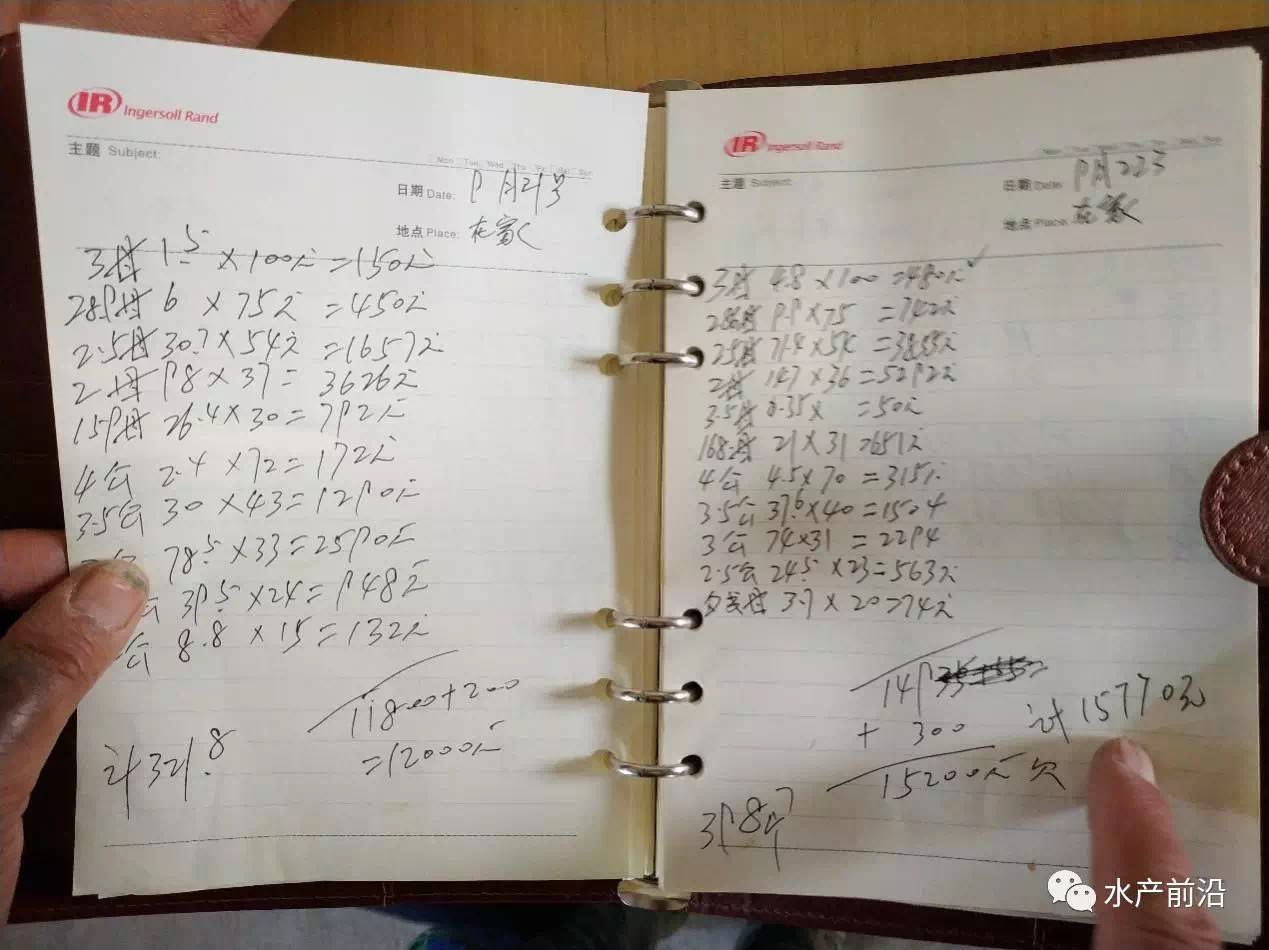 IR Ingersoll Rand
主题 Subject:
Mon Tue Wed Thu Fri Sat Sun
日期 Date: 9月21号
地点 Place:
3母 1.5 × 100元 = 150元
289母 6 × 75元 = 450元
2.5母 30.7 × 54元 = 1657元
2母 98 × 37 = 3626元
159母 26.4 × 30 = 792元
4公 2.4 × 72 = 172元
3.5公 30 × 43 = 1290元
公 78.5 × 33 = 2590元
公 39.5 × 24 = 948元
公 8.8 × 15 = 132元
11800 + 200
= 12000元
计 321.8
IR Ingersoll Rand
主题 Subject:
Mon Tue Wed Thu Fri Sat Sun
日期 Date: 9月22号
地点 Place:
3母 4.8 × 100 = 480元 ✓
286母 9.9 × 75 = 742元
2.5母 71.4 × 54 = 3855元
2母 147 × 36 = 5292元
3.5母 0.35 × = 50元
母 21 × 31 = 651元
4公 4.5 × 70 = 315元
3.5公 37.6 × 40 = 1504
3公 74 × 31 = 2294
2.5公 24.5 × 23 = 563元
母 3.7 × 20 = 74元
149
+ 300
15200元 欠
计 15770元
398.7斤
水产前沿